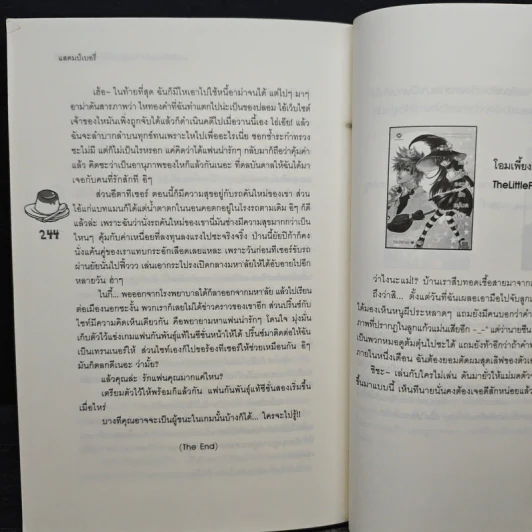 แสตมป์เบอรี่
เฮ้อ~ ในท้ายที่สุด ฉันก็มีไหเอาไปใช้หนี้อาม่าจนได้ แต่ไปๆ มาๆ
อาม่าดันสารภาพว่า ไหทองคำที่ฉันทำแตกไปน่ะเป็นของปลอม ใช้เว็บไซต์
เจ้าของไหมันเพิ่งถูกจับได้แล้วก็ดำเนินคดีไปเมื่อวานนี้เอง ไอ้เอ๊ย! แล้ว
ฉันจะลำบากลำบนทุกข์ทนเพราะไหไปเพื่ออะไรเนี่ย ชอกช้ำระกำทรวง
ชะไม่มี แต่ก็ไม่เป็นไรหรอก แค่คิดว่าได้แฟนน่ารักๆ กลับมาก็ถือว่าคุ้มค่า
แล้ว คิดซะว่าเป็นอานุภาพของไหก็แล้วกันเนอะ ที่ดลบันดาลให้ฉันได้มา
เจอกับคนที่รักสักที อิๆ
ส่วนอีตาทีเชอร์ ตอนนี้ก็มีความสุขอยู่กับรถคันใหม่ของเขา ส่วน
ไอ้แก่แบทแมนก็ได้แต่น้ำตาตกในนอนคอตกอยู่ในโรงรถตามเดิม อิๆ ก็ดี
แล้วล่ะ เพราะฉันว่านั่งรถคันใหม่ของเขานี่มันช่างมีความสุขมากกว่าเป็น
ไหนๆ คุ้มกับค่าเหนื่อยที่ลงทุนลงแรงไปซะจริงจริ๊ง ป่านนี้ยัยปีก้าก็คง
นั่งแค้นคู่ของเราแทบกระอักเลือดเลยแหละ เพราะวันก่อนทีเชอร์ขับรถ
ผ่านยัยนั่นไปฟิ้ววว เล่นเอากระโปรงเปิดกลางมหาลัยให้ได้อับอายไปอีก
หลายวัน ฮ่าๆ
244
ไนกี้... พอออกจากโรงพยาบาลได้ก็ลาออกจากมหา'ลัย แล้วไปเรียน
ต่อเมืองนอกซะงั้น พวกเราก็เลยไม่ได้ข่าวคราวของเขาอีก ส่วนปริ๊นซ์กับ
ไซท์มีความคิดเห็นเดียวกัน คือพยายามหาแฟนน่ารักๆ โดนใจ มุ่งมั่น
เก็บตัวไว้แข่งเกมแฟนกันพันธุ์แท้ในซีซั่นหน้าให้ได้ ปริ๊นซ์มาติดต่อให้ฉัน
เป็นเทรนเนอร์ให้ ส่วนไซท์เองก็ไปขอร้องทีเชอร์ให้ช่วยเหมือนกัน อิๆ
มันก็ตลกดีเนอะ ว่ามั้ย?
แล้วคุณล่ะ รักแฟนคุณมากแค่ไหน?
เตรียมตัวไว้ให้พร้อมก็แล้วกัน แฟนกันพันธุ์แท้ซีซั่นสองเริ่มขึ้น
เมื่อไหร่
บางทีคุณอาจจะเป็นผู้ชนะในเกมนั้นบ้างก็ได้... ใครจะไปรู้!!
(The End)
โอมเพี้ยง
TheLittleF
ว่าไงนะแม่!? บ้านเราสืบทอดเชื้อสายมาจาก
ถึงว่าสิ... ตั้งแต่วันที่ฉันเผลอเอามือไปจับลูก
ได้มองเห็นหนูผีประหลาดๆ แถมยังมีคนบอกว่าคำ
ภาพที่ปรากฏในลูกแก้วแม่นเสียอีก -_-" แต่นายซีน
เป็นพวกหมอดูต้มตุ๋นไปซะได้ แถมยังท้าอีกว่าถ้าคำท
ภายในหนึ่งเดือน ฉันต้องยอมตัดผมสุดเลิฟของตัวเ
ชิชะ~ เล่นกับใครไม่เล่น ดันมายั่วให้แม่มดตัวจ
ขึ้นมาแบบนี้ เห็นทีนายนั่นคงต้องเจอดีสักหน่อยแล้ว